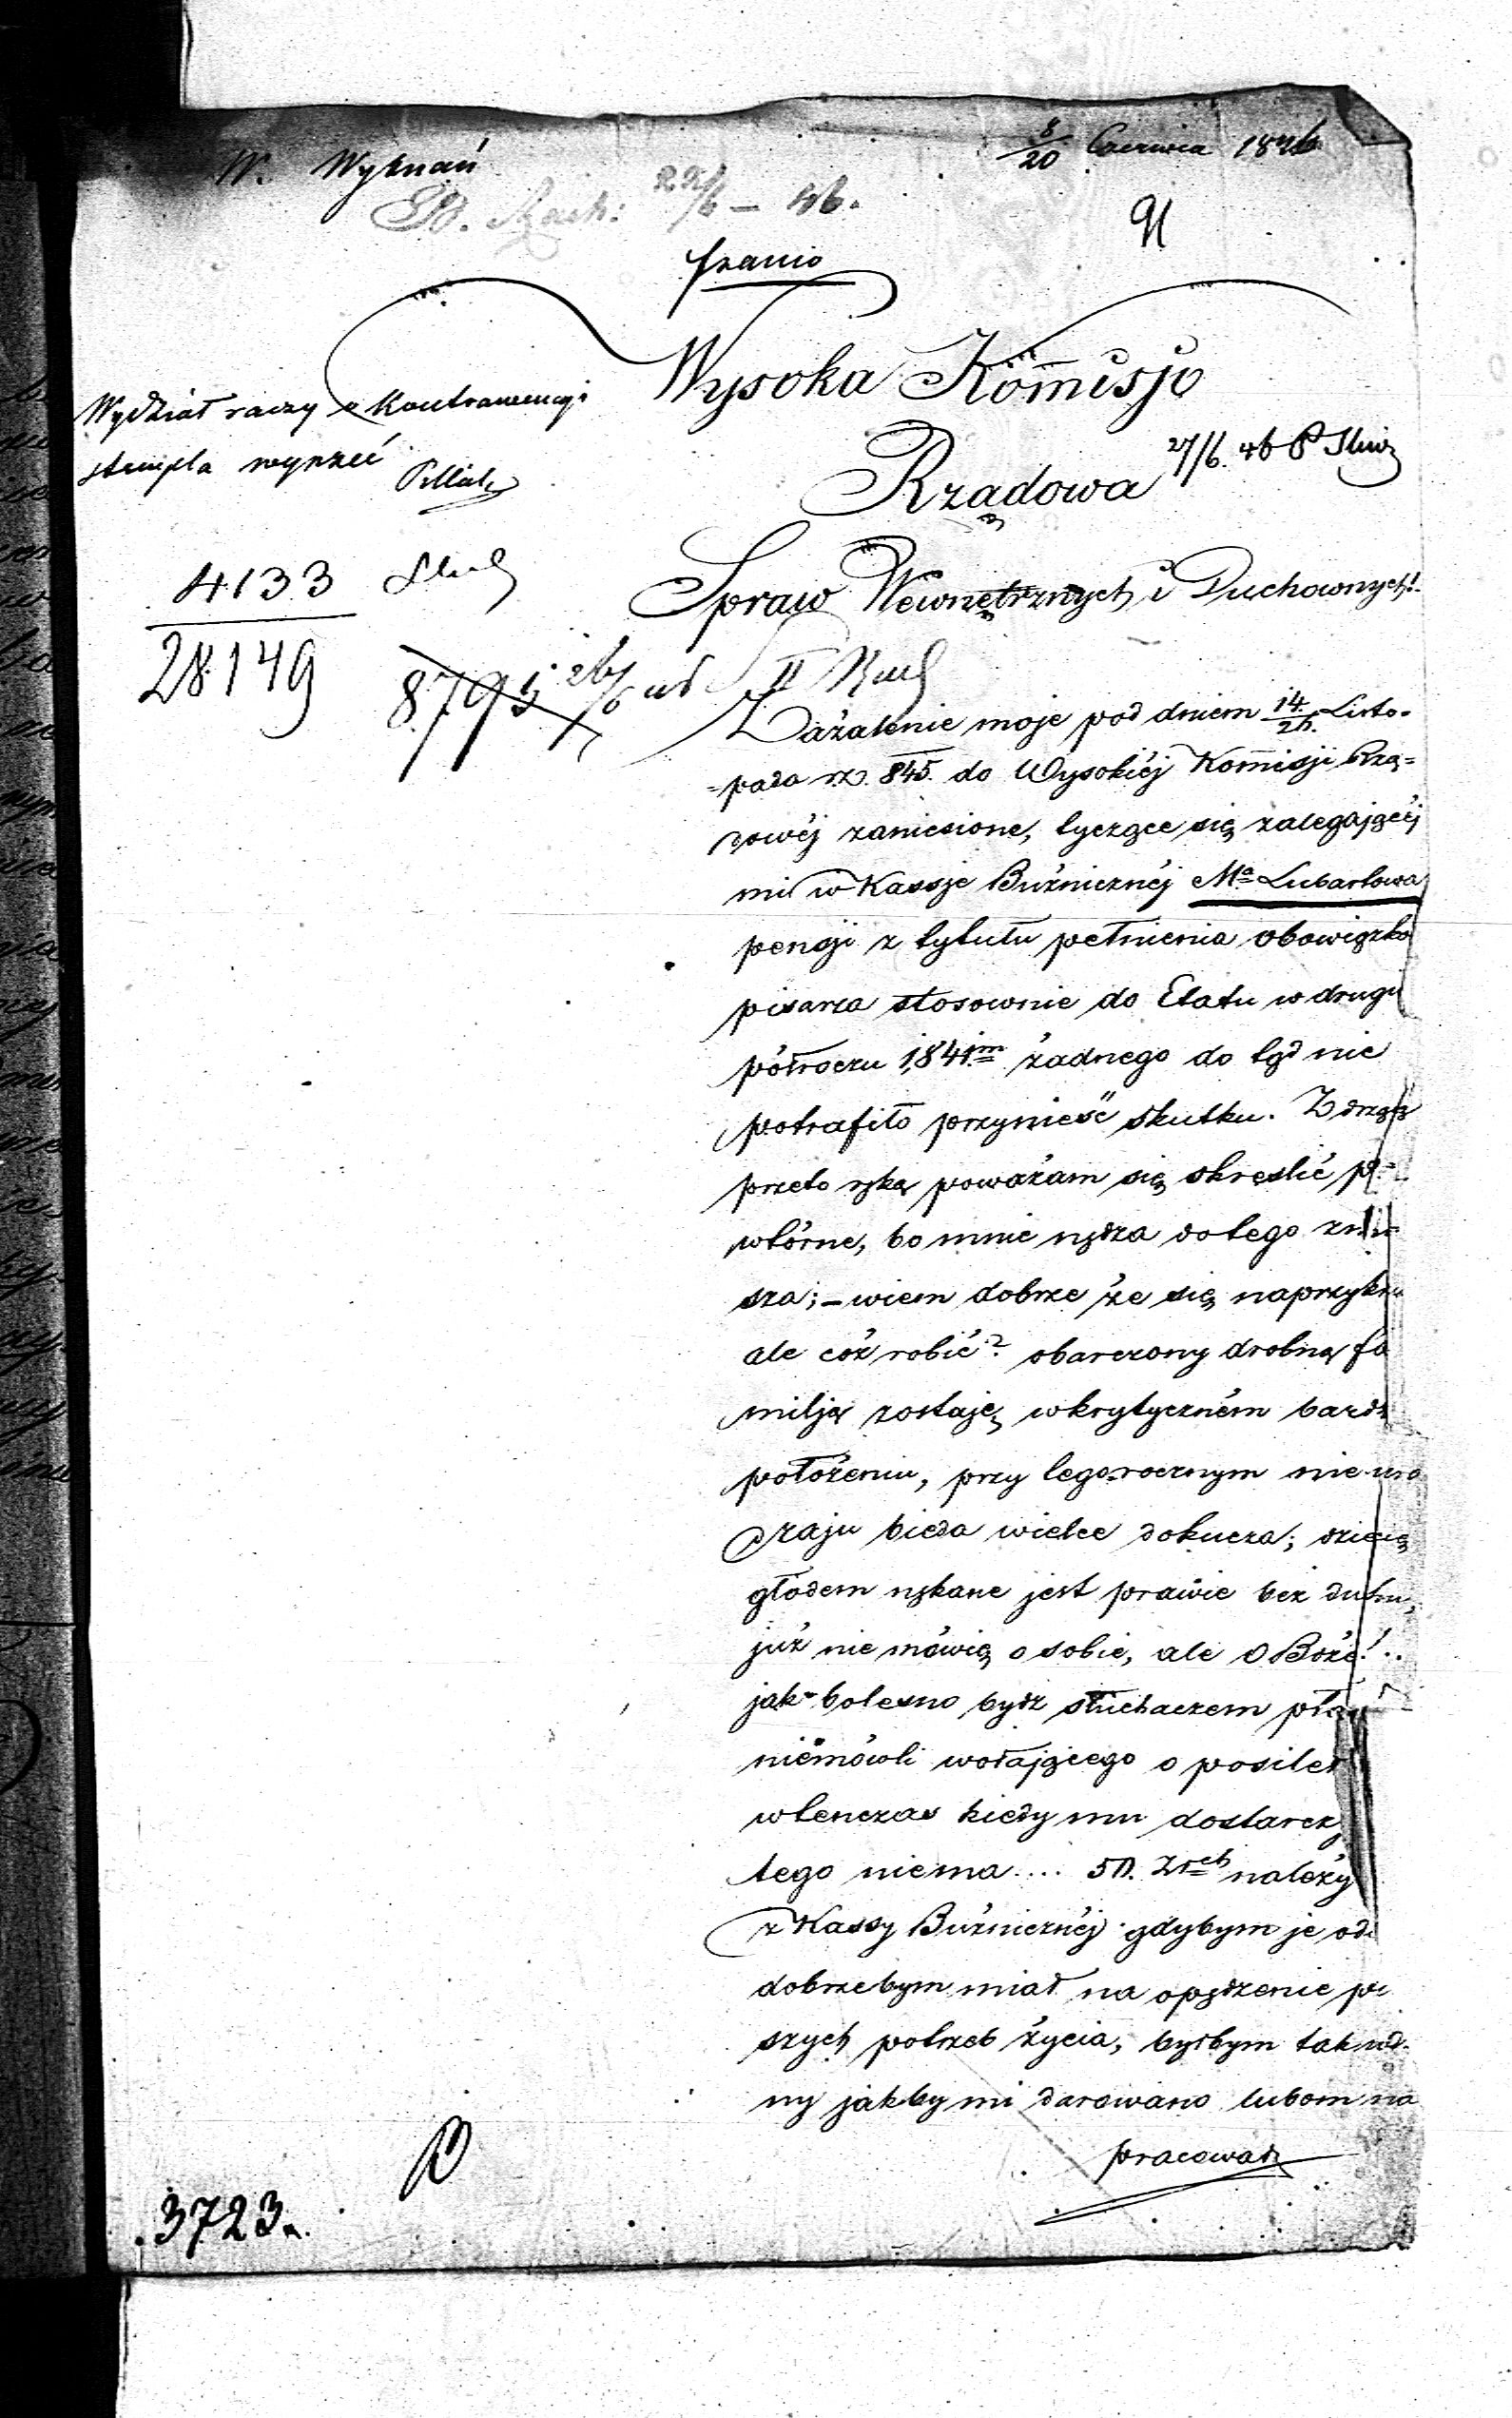 W. Wyznań
8/20 Czerwca 1846
22/6 – 46.
91
franco
Wysoka Kom̄isjo
Rządowa
Spraw Wewnętrznych i Duchownych!
Wydział raczy o Kontrawencyi
stempla wyrzec
27/6. 46 P
4133
28149
8795
26/6
II
Zażalenie moje pod dniem 14/26. Listo-
=pada r.z. 845. do Wysokiéj Kom̄isji Rzą=
dowéj zaniesione, tyczące się zalegającéj
mi w Kassje Bużnicznéj Mᵃ Lubartowa
pensji z tytułu pełnienia obowiązko
pisarza stosownie do Etatu w drugi
półroczu 1841ᵐ żadnego do tąd nie
potrafiło przynieść skutku. Z drżącą
przeto ręką poważam się skreślić po=
wtórne, bo mnie nędza do tego zmu=
sza; – wiem dobrze że się naprzykrza
ale cóż robić? obarczony drobną fa
milją zostaję, w krytyczném bardz
położeniu, przy tegorocznym nieuro
dzaju bieda wielce dokucza; dziecię
głodem nękane jest prawie bez duchu,
już nie mówię o sobie, ale O Boże!..
jak bolesno bydź słuchaczem płaczu
niemówli wołającego o posiłek
wtenczas kiedy mu dostarczy
tego niema .... 50. Złᶜʰ należy
z Kassy Bużnicznéj gdybym je ode
dobrzebym miał na opędzenie pi
szych potrzeb życia, byłbym tak wd.
ny jakby mi darowano lubom na
pracował
3723.